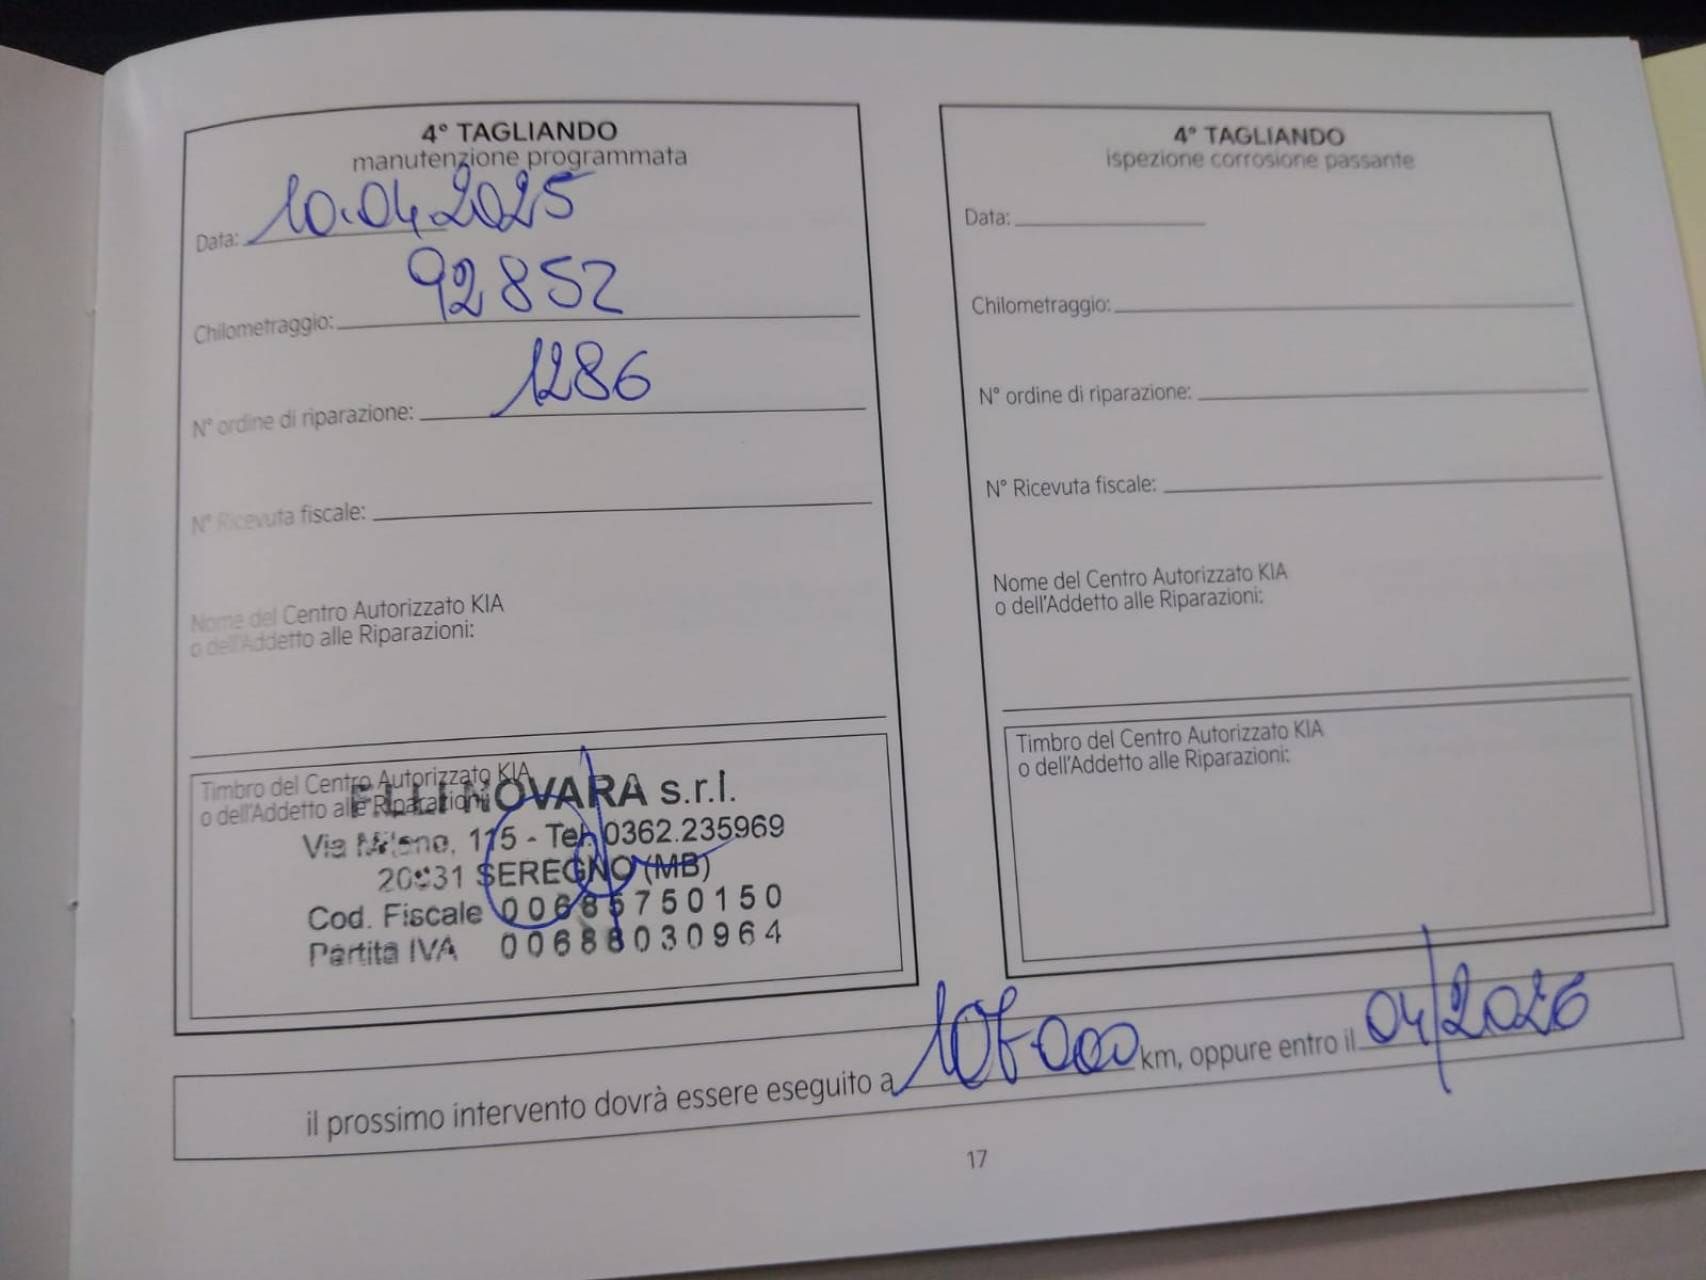 4° TAGLIANDO
manutenzione programmata
Data: 10.04.2025
Chilometraggio: 92852
N° ordine di riparazione: 1286
N° Ricevuta fiscale:
Nome del Centro Autorizzato KIA
o dell'Addetto alle Riparazioni:
Timbro del Centro Autorizzato KIA
o dell'Addetto alle Riparazioni:
F.LLI NOVARA s.r.l.
Via Milano, 115 - Tel. 0362.235969
20831 SEREGNO (MB)
Cod. Fiscale 00685750150
Partita IVA 00688030964
4° TAGLIANDO
ispezione corrosione passante
Data:
Chilometraggio:
N° ordine di riparazione:
N° Ricevuta fiscale:
Nome del Centro Autorizzato KIA
o dell'Addetto alle Riparazioni:
Timbro del Centro Autorizzato KIA
o dell'Addetto alle Riparazioni:
il prossimo intervento dovrà essere eseguito a km, oppure entro il 04/2026
17